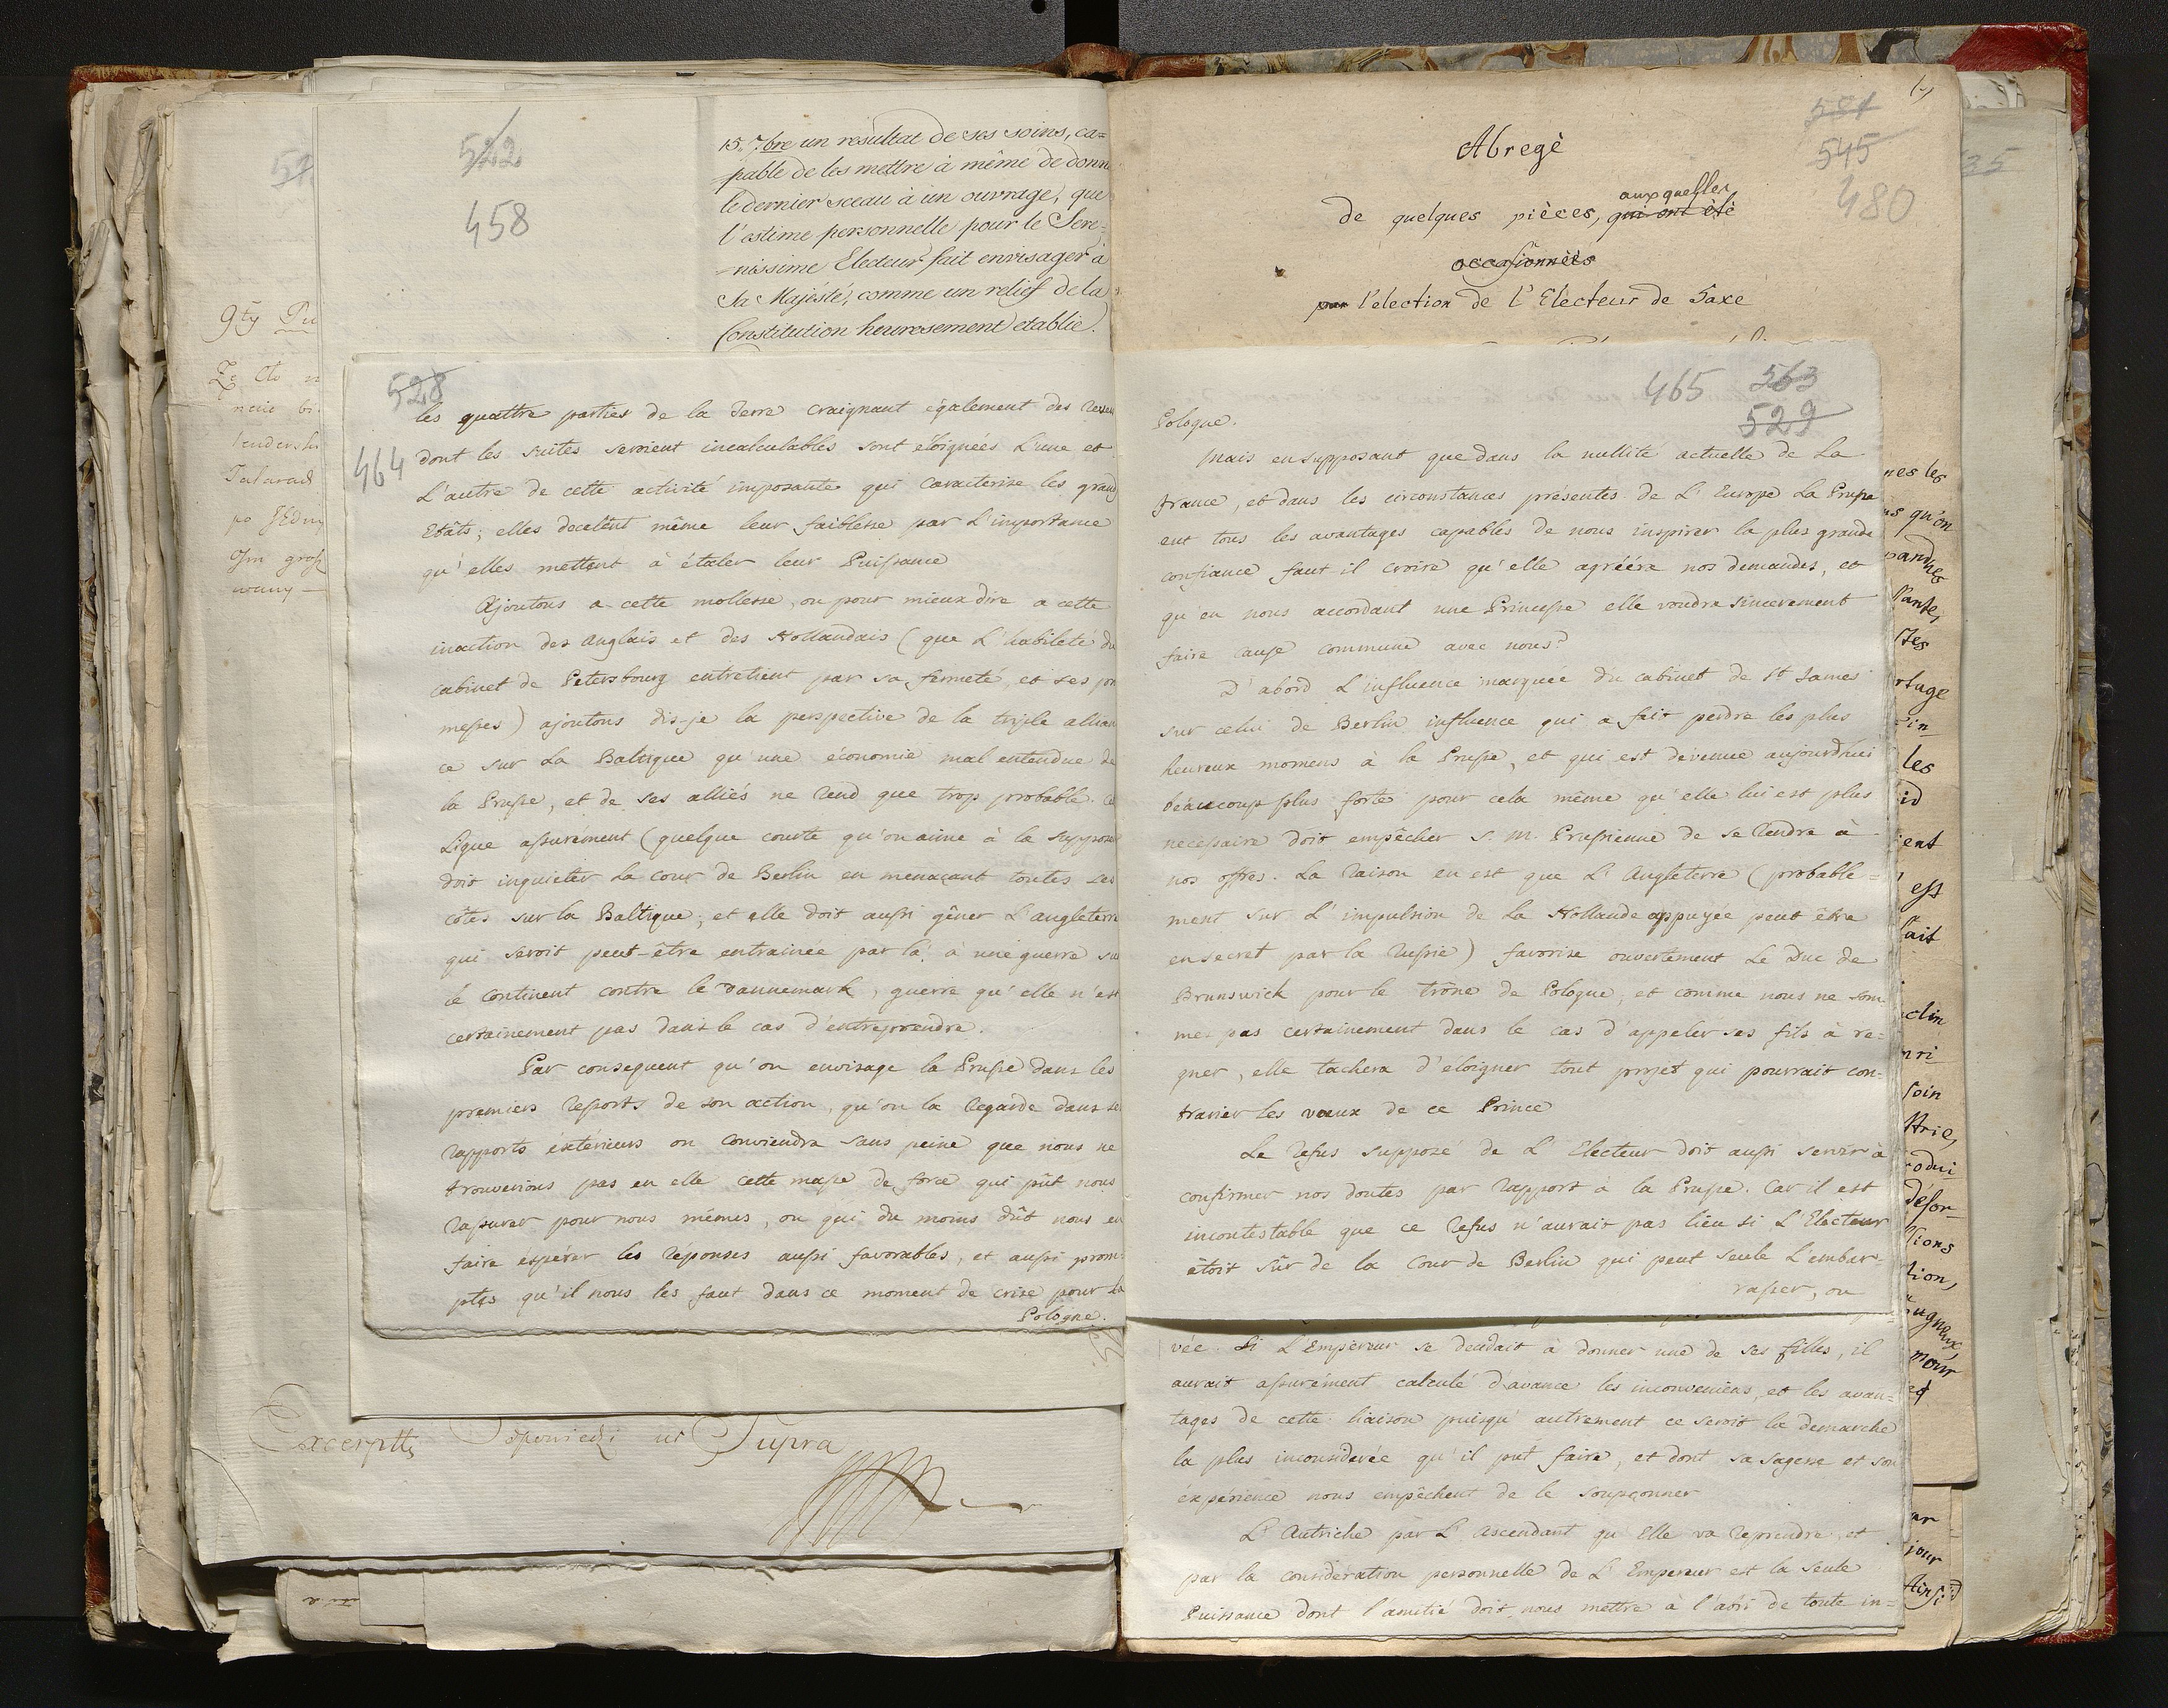 522
458
15. 7bre un resultat de ses soins, ca=
pable de les mettre à même de donn
le dernier sceau à un ouvrage, que
l'estime personnelle pour le Sere=
nissime Electeur fait envisager à
Sa Majesté, comme un relief de la
Constitution heuresement etablie.
528
464
les quattre parties de la Terre craignant également des
dont les suites seroient incalculables sont éloignées L'une et
L'autre de cette activité imposante qui caracterise les grand
Etâts; elles decelent même leur faiblesse par L'importance
qu'elles mettent à étaler leur Puissance
Ajoutons a cette mollesse, ou pour mieux dire a cette
inaction des Anglais et des Hollandais (que L'habileté du
cabinet de Petersbourg entretient par sa fermeté, et ses pro
messes) ajoutons dis-je la perspective de la triple allian
ce sur La Baltique qu'une économie mal entendue de
la Prusse, et de ses alliés ne rend que trop probable. Ce
Ligue assurément (quelque courte qu'on aime à la suppose
doit inquieter La cour de Berlin en menaçant toutes ses
côtes sur la Baltique; et elle doit aussi gêner L'angleterre
qui seroit peut-être entrainée par là à une guerre su
le continent contre le Dannemark, guerre qu'elle n'est
certainement pas dans le cas d'entreprendre.
Par consequent qu'on envisage la Prusse dans les
premiers ressorts de son action, qu'on la regarde dans se
rapports éxtérieurs on conviendra sans peine que nous ne
trouverions pas en elle cette masse de force qui pût nous
rassurer pour nous mêmes, ou qui du moins dût nous en
faire espérer les réponses aussi favorables, et aussi prom
ptes qu'il nous les faut dans ce moment de crise pour La
Pologne.
Excerptt Odpowiedzi ut Supra
Abregè
de quelques pièces, qui ont été auxquelles
occasionnées
par l'election de l'Electeur de Saxe
551
545
480
465 563
529
Pologne.
Mais en supposant que dans la nullité actuelle de La
France, et dans les circonstances présentes de L'Europe La Prusse
eut tous les avantages capables de nous inspirer la plus grande
confiance faut il croire qu'elle agréera nos demandes, et
qu'en nous accordant une Princesse elle voudra sincerement
faire cause commune avec nous?
D'abord L'influence marquée du cabinet de St James
sur celui de Berlin influence qui a fait perdre les plus
heureux momens à la Prusse, et qui est devenue aujourdhui
beaucoup plus forte pour cela même qu'elle lui est plus
necessaire doit empêcher S. M. Prussienne de se rendre à
nos offres. La raison en est que L'Angleterre (probable=
ment sur L'impulsion de La Hollande appuyée peut être
en secret par la Russie) favorise ouvertement Le Duc de
Brunswick pour le trône de Pologne, et comme nous ne som
mes pas certainement dans le cas d'appeler ses fils à re=
gner, elle tachera d'eloigner tout projet qui pourrait con=
trarier les voeux de ce Prince
Le refus supposé de L'Electeur doit aussi servir à
confirmer nos doutes par rapport à la Prusse. Car il est
incontestable que ce refus n'aurait pas lieu si L'Electeur
étoit sûr de la Cour de Berlin qui peut seule L'embar=
rasser, ou
vée. Si L'Empereur se decidait à donner une de ses filles, il
aurait assurément calculé d'avance les inconveniens, et les avan=
tages de cette liaison puisqu'autrement ce seroit la demarche
la plus inconsiderée qu'il put faire, et dont sa sagesse et son
éxpérience nous empêchent de le soupçonner
L'Autriche par L'ascendant qu'Elle va reprendre, et
par la considération personnelle de L'Empereur est la seule
Puissance dont l'amitié doit nous mettre à l'abri de toute in=